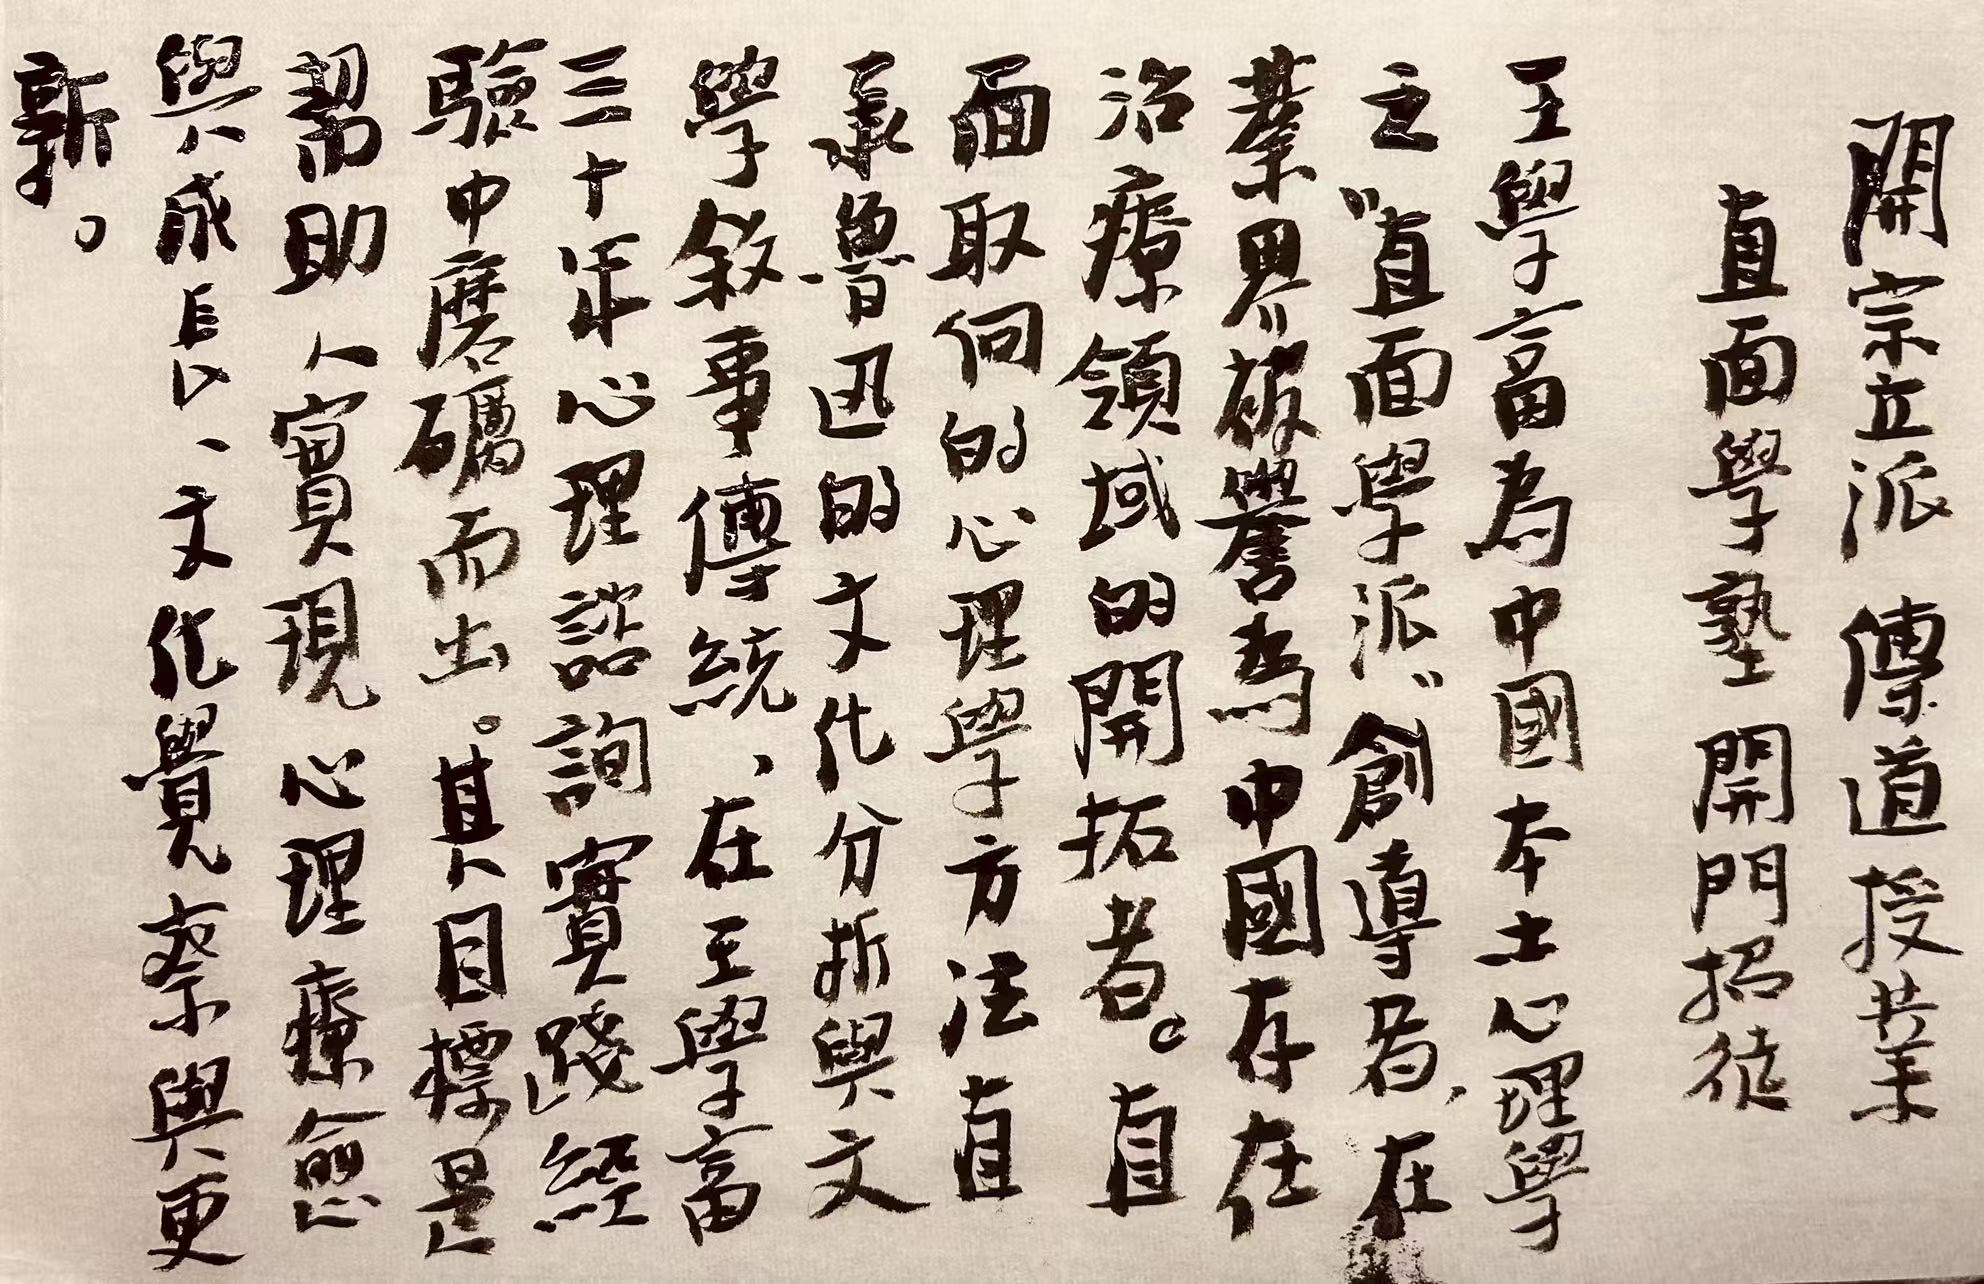 開宗立派 傳道授業
直面學塾開門招徒
王學富為中國本土心理學
之"直面學派"創導者,在
業界"被譽為中國存在
治療領域的開拓者。直
面取向的心理學方法直
承魯迅的文化分析與文
學敘事傳統、在王學富
三十年心理諮詢實踐經
驗中磨礪而出。其目標是
幫助人實現心理療愈
與成長、文化覺察與更
新。